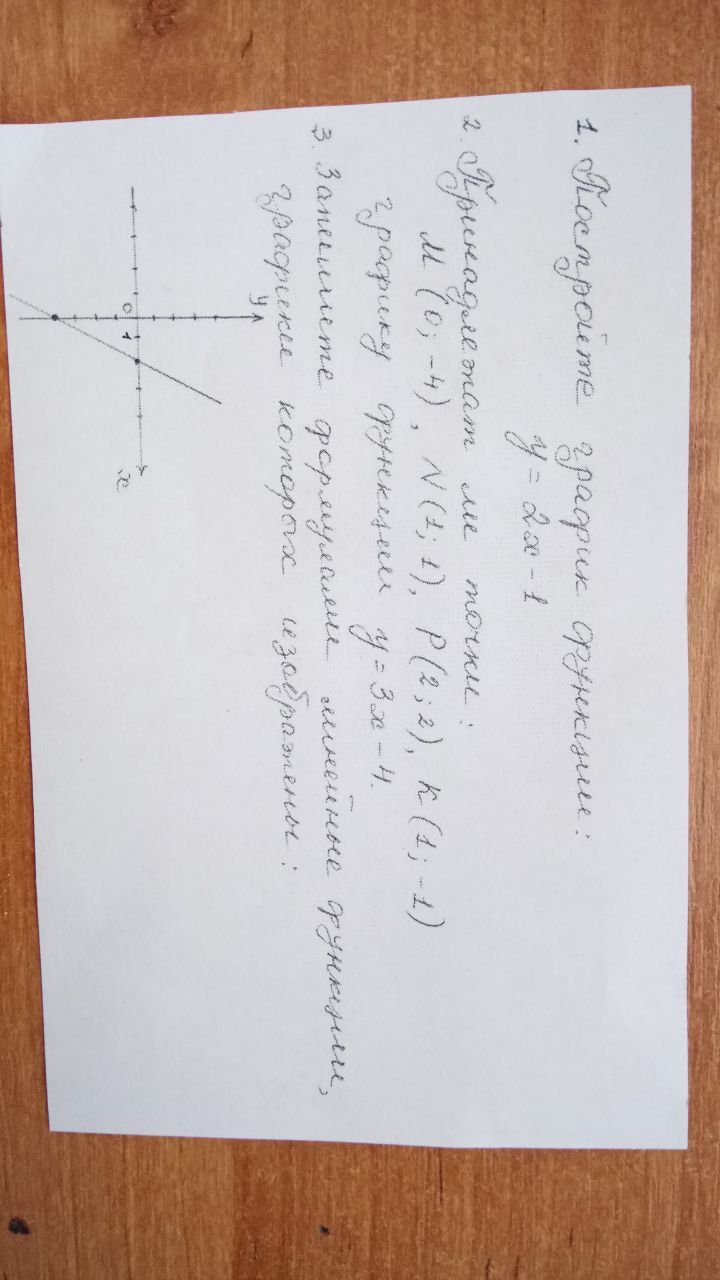 1. Постройте график функции:
y = 2x - 1
2. Принадлежат ли точки:
M (0; -4), N (1; 1), P (2; 2), K (1; -1)
графику функции y = 3x - 4.
3. Запишите формулами линейные функции,
графики которых изображены:
y
0
1
x